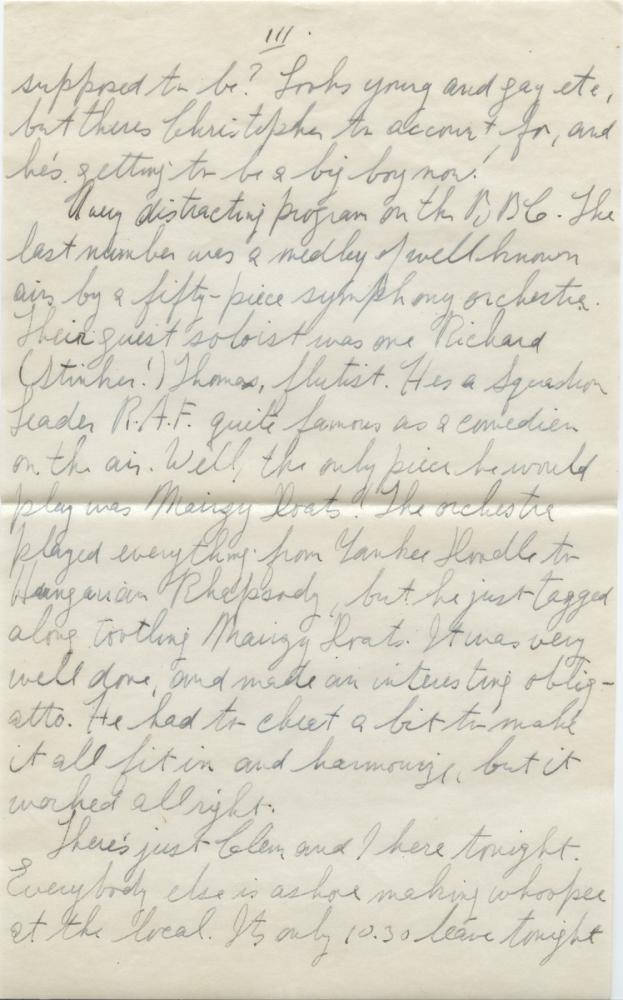 III.
supposed to be? Looks young and gay etc,
but theres Christopher to account for, and
he's getting to be a big boy now!
A very distracting program on the B.B.C. The
last number was a medley of well known
airs by a fifty-piece symphony orchestra.
Their guest soloist was one Richard
(Stinker!) Thomas, flutist. Hes a Squadron
Leader R.A.F. quite famous as a comedien
on the air. Well, the only piece he would
play was Mairzy Doats! The orchestra
played everything from Yankee Doodle to
Hungarian Rhapsody, but he just tagged
along tootling Mairzy Doats. It was very
well done, and made an interesting oblig-
atto. He had to cheat a bit to make
it all fit in and harmonize, but it
worked all right.
There's just Clem and I here tonight.
Everybody else is ashore making whoopee
at the local. Its only 10.30 leave tonight